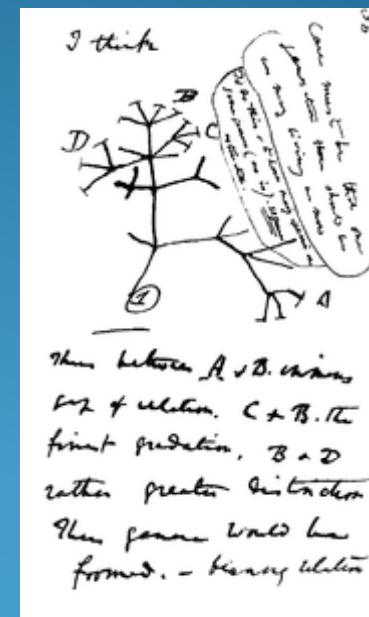 I think
B
D
C
A
1
Case must be that one
generation then should be
as many living as now
To do this & to have many species in
same genus (as is) requires
extinction.
Thus between A & B. immense
gap of relation. C & B. the
finest gradation, B & D
rather greater distinction
Thus genera would be
formed. — bearing relation